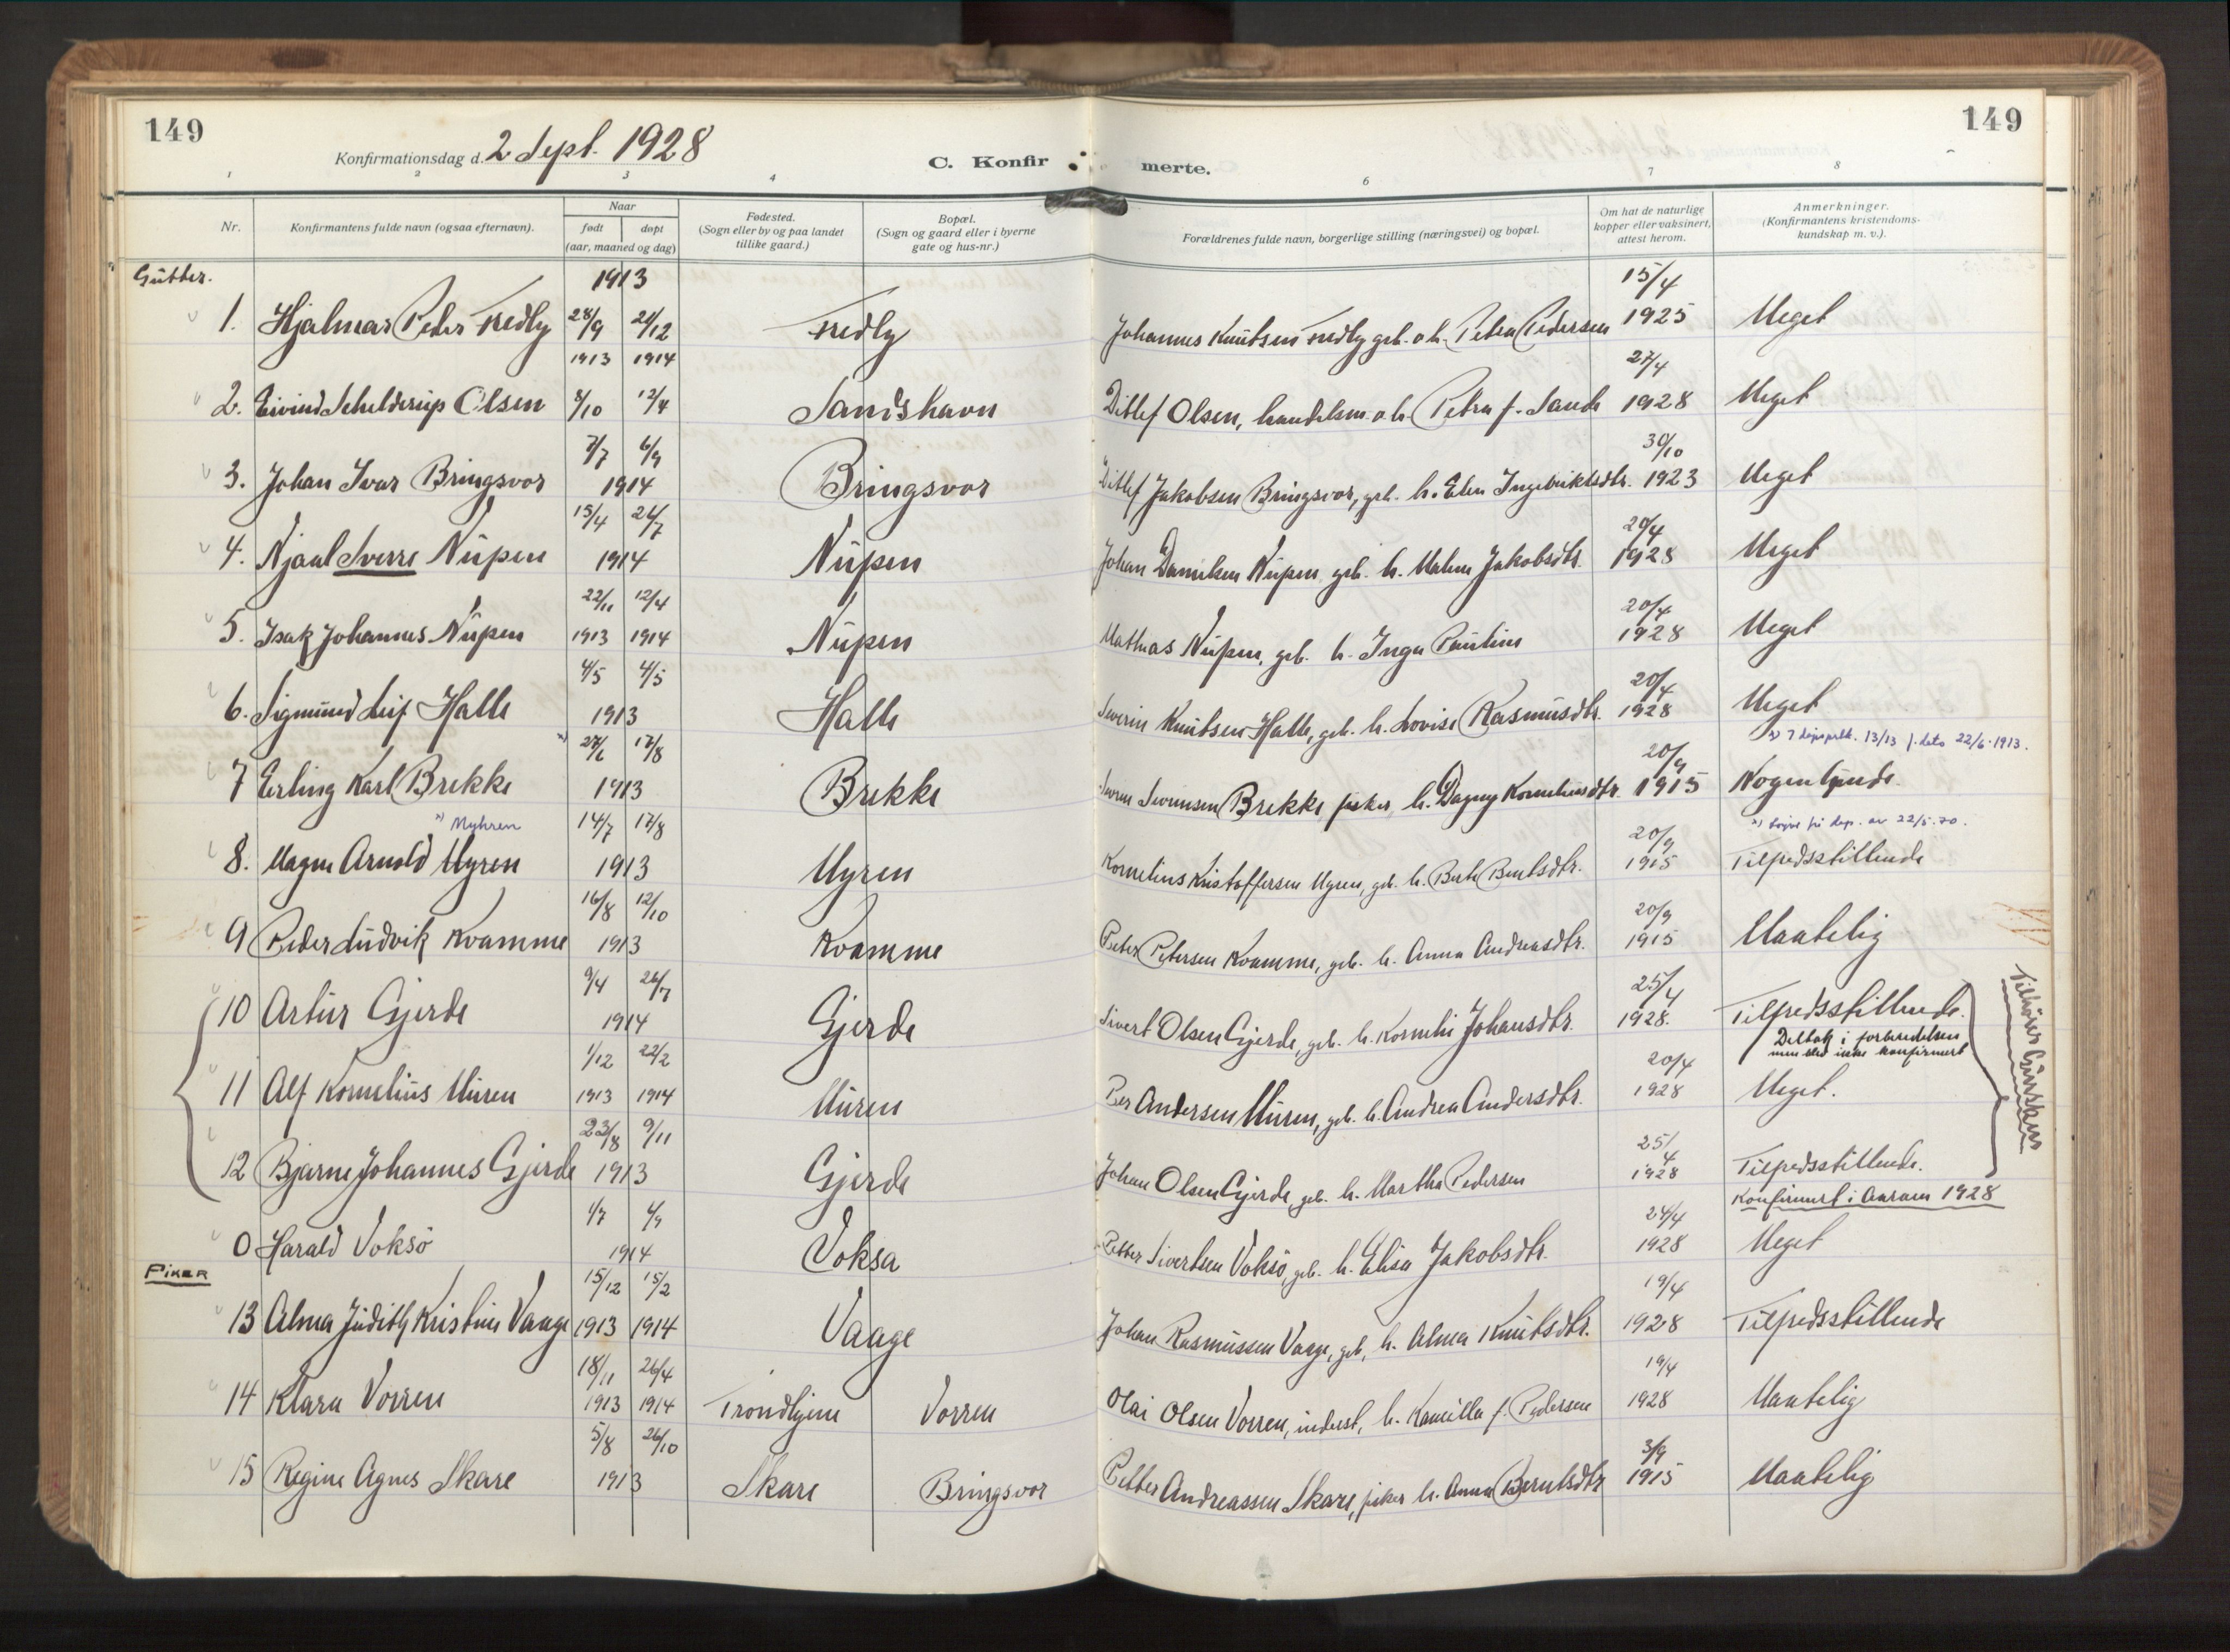 149
149
Konfirmationsdag d. 2 Sept. 1928
C. Konfir merte.
1 2 3 4 6 7 8
Nr.
Konfirmantens fulde navn (ogsaa efternavn).
Naar
født døpt
(aar, maaned og dag)
Fødested.
(Sogn eller by og paa landet
tillike gaard.)
Bopæl.
(Sogn og gaard eller i byerne
gate og hus-nr.)
Forældrenes fulde navn, borgerlige stilling (næringsvei) og bopæl.
Om hat de naturlige
kopper eller vaksinert,
attest herom.
Anmerkninger.
(Konfirmantens kristendoms-
kundskap m. v.).
Gutter.
1913 15/4
1. Hjalmar Peder Fredly 28/9 21/12 Fredly Johannes Knutsen Fredly grb. o h. Petra Pedersen 1925 Meget
1913 1914 27/4
2. Eivind Schelderup Olsen 8/10 12/4 Sandshavn Ditlef Olsen, handelsm. o h. Petra f. Sande 1928 Meget
7/7 6/9 30/10
3. Johan Ivar Bringsvor 1914 Bringsvor Ditlef Jakobsen Bringsvor, grb. h. Elen Ingebriktsdtr. 1923 Meget
15/4 26/7 20/4
4. Njaal Sverre Nupen 1914 Nupen Johan Danielsen Nupen, grb. h. Malene Jakobsdtr. 1928 Meget
22/11 12/4 20/4
5. Isak Johannes Nupen 1913 1914 Nupen Mathias Nupen, grb. h. Inga Pauline 1928 Meget
4/5 4/5 20/4
6. Sigmund Leif Halle 1913 Halle Severin Knutsen Halle, grb. h. Lovise Rasmusdtr. 1928 Meget
x) 27/6 17/8 20/9 x) I døpsprtk. 13/13 f. dato 22/6-1913.
7 Erling Karl Brekke 1913 Brekke Severin Severinsen Brekke fisker h. Dagny Korneliusdtr. 1915 Nogenlunde.
x) Myhren 14/7 17/8 20/9
8. Magne Arnold Myren 1913 Myren Kornelius Kristoffersen Myren, grb. h. Berte Berntsdtr. 1915 Tilfredsstillende
16/8 12/10 20/9
9 Peder Ludvik Kvamme 1913 Kvamme Peter Petersen Kvamme, grb. h. Anna Andreasdtr. 1915 Maatelig
9/4 26/7 25/4
10 Artur Gjerde 1914 Gjerde Sivert Olsen Gjerde, grb. h. Korneli Johansdtr. 1928. Tilfredsstillende.
Deltok i forberedelsen
men blev ikke konfirmert
1/12 22/2 20/4
11 Alf Kornelius Muren 1913 1914 Muren Per Andersen Muren, grb. h. Andrea Andersdtr. 1928 Meget.
23/8 9/11 25/4
12 Bjarne Johannes Gjerde 1913 Gjerde Johan Olsen Gjerde, grb. h. Martha Pedersen 1928 Tilfredsstillende.
Tilhører Gurskens
Konfirmert i Aaram 1928
1/7 6/9 24/4
0 Harald Voksø 1914 Voksa Petter Sivertsen Voksø, grb. h. Elisa Jakobsdtr. 1928 Meget
PIKER
15/12 15/2 19/4
13 Alma Judith Kristine Vaage 1913 1914 Vaage Johan Rasmussen Vaage, grb, h. Alma Knutsdtr. 1928 Tilfredsstillende
18/11 26/4 19/4
14 Klara Vorren 1913 1914 Trondhjem Vorren Olai Olsen Vorren, inderst, h. Kamilla f. Pedersen 1928 Maatelig
5/8 26/10 3/9
15 Regine Agnes Skare 1913 Skare Bringsvor Petter Andreassen Skare, fisker h. Anna Berntsdtr 1915 Maatelig